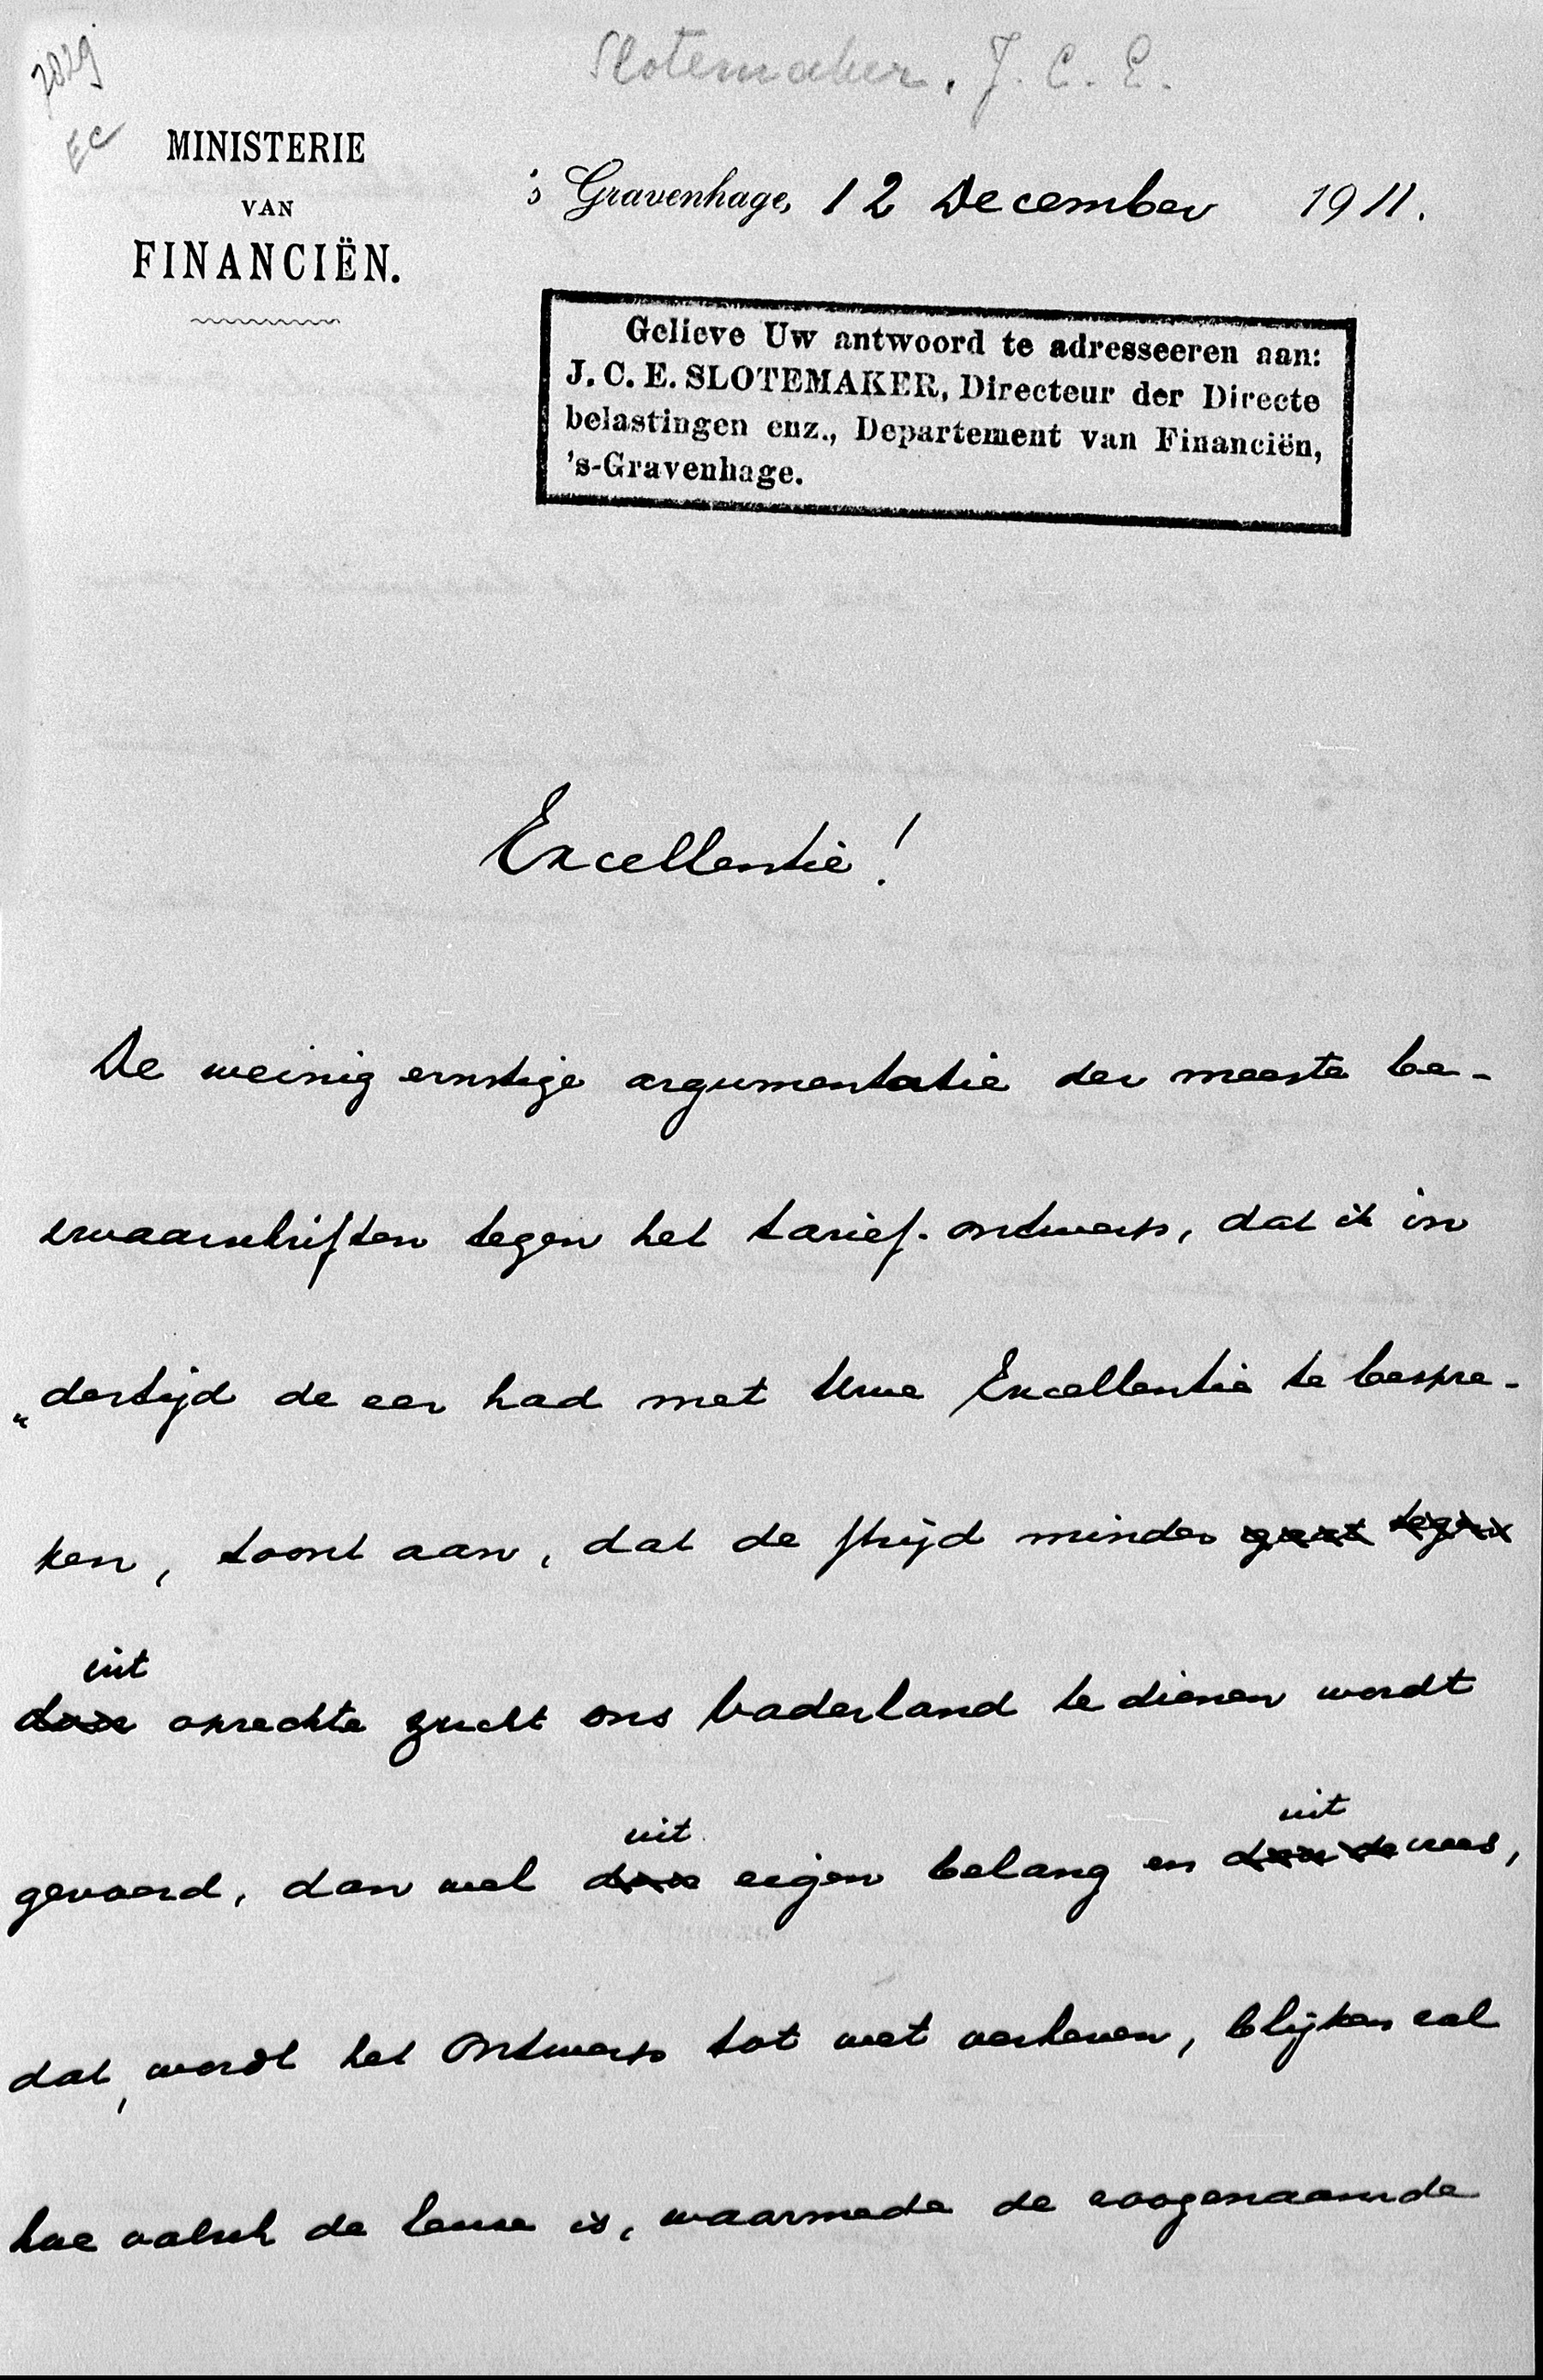 7029
EC
Slotemaker, J. C. E.
MINISTERIE
VAN
FINANCIËN.
's Gravenhage, 12 December 1911.
Gelieve Uw antwoord te adresseeren aan:
J. C. E. SLOTEMAKER, Directeur der Directe
belastingen enz., Departement van Financiën,
's-Gravenhage.
Excellentie!
De weinig ernstige argumentatie der meeste be-
zwaarschriften tegen het tarief-ontwerp, dat ik in
„dertijd de eer had met Uwe Excellentie te bespre-
ken, toont aan, dat de strijd minder
uit
door oprechte zucht ons Vaderland te dienen wordt
uit uit
gevoerd, dan wel door eigen belang en door de vrees,
dat, wordt het Ontwerp tot wet verheven, blijken zal
hoe valsch de leuze is, waarmede de zoogenaamde